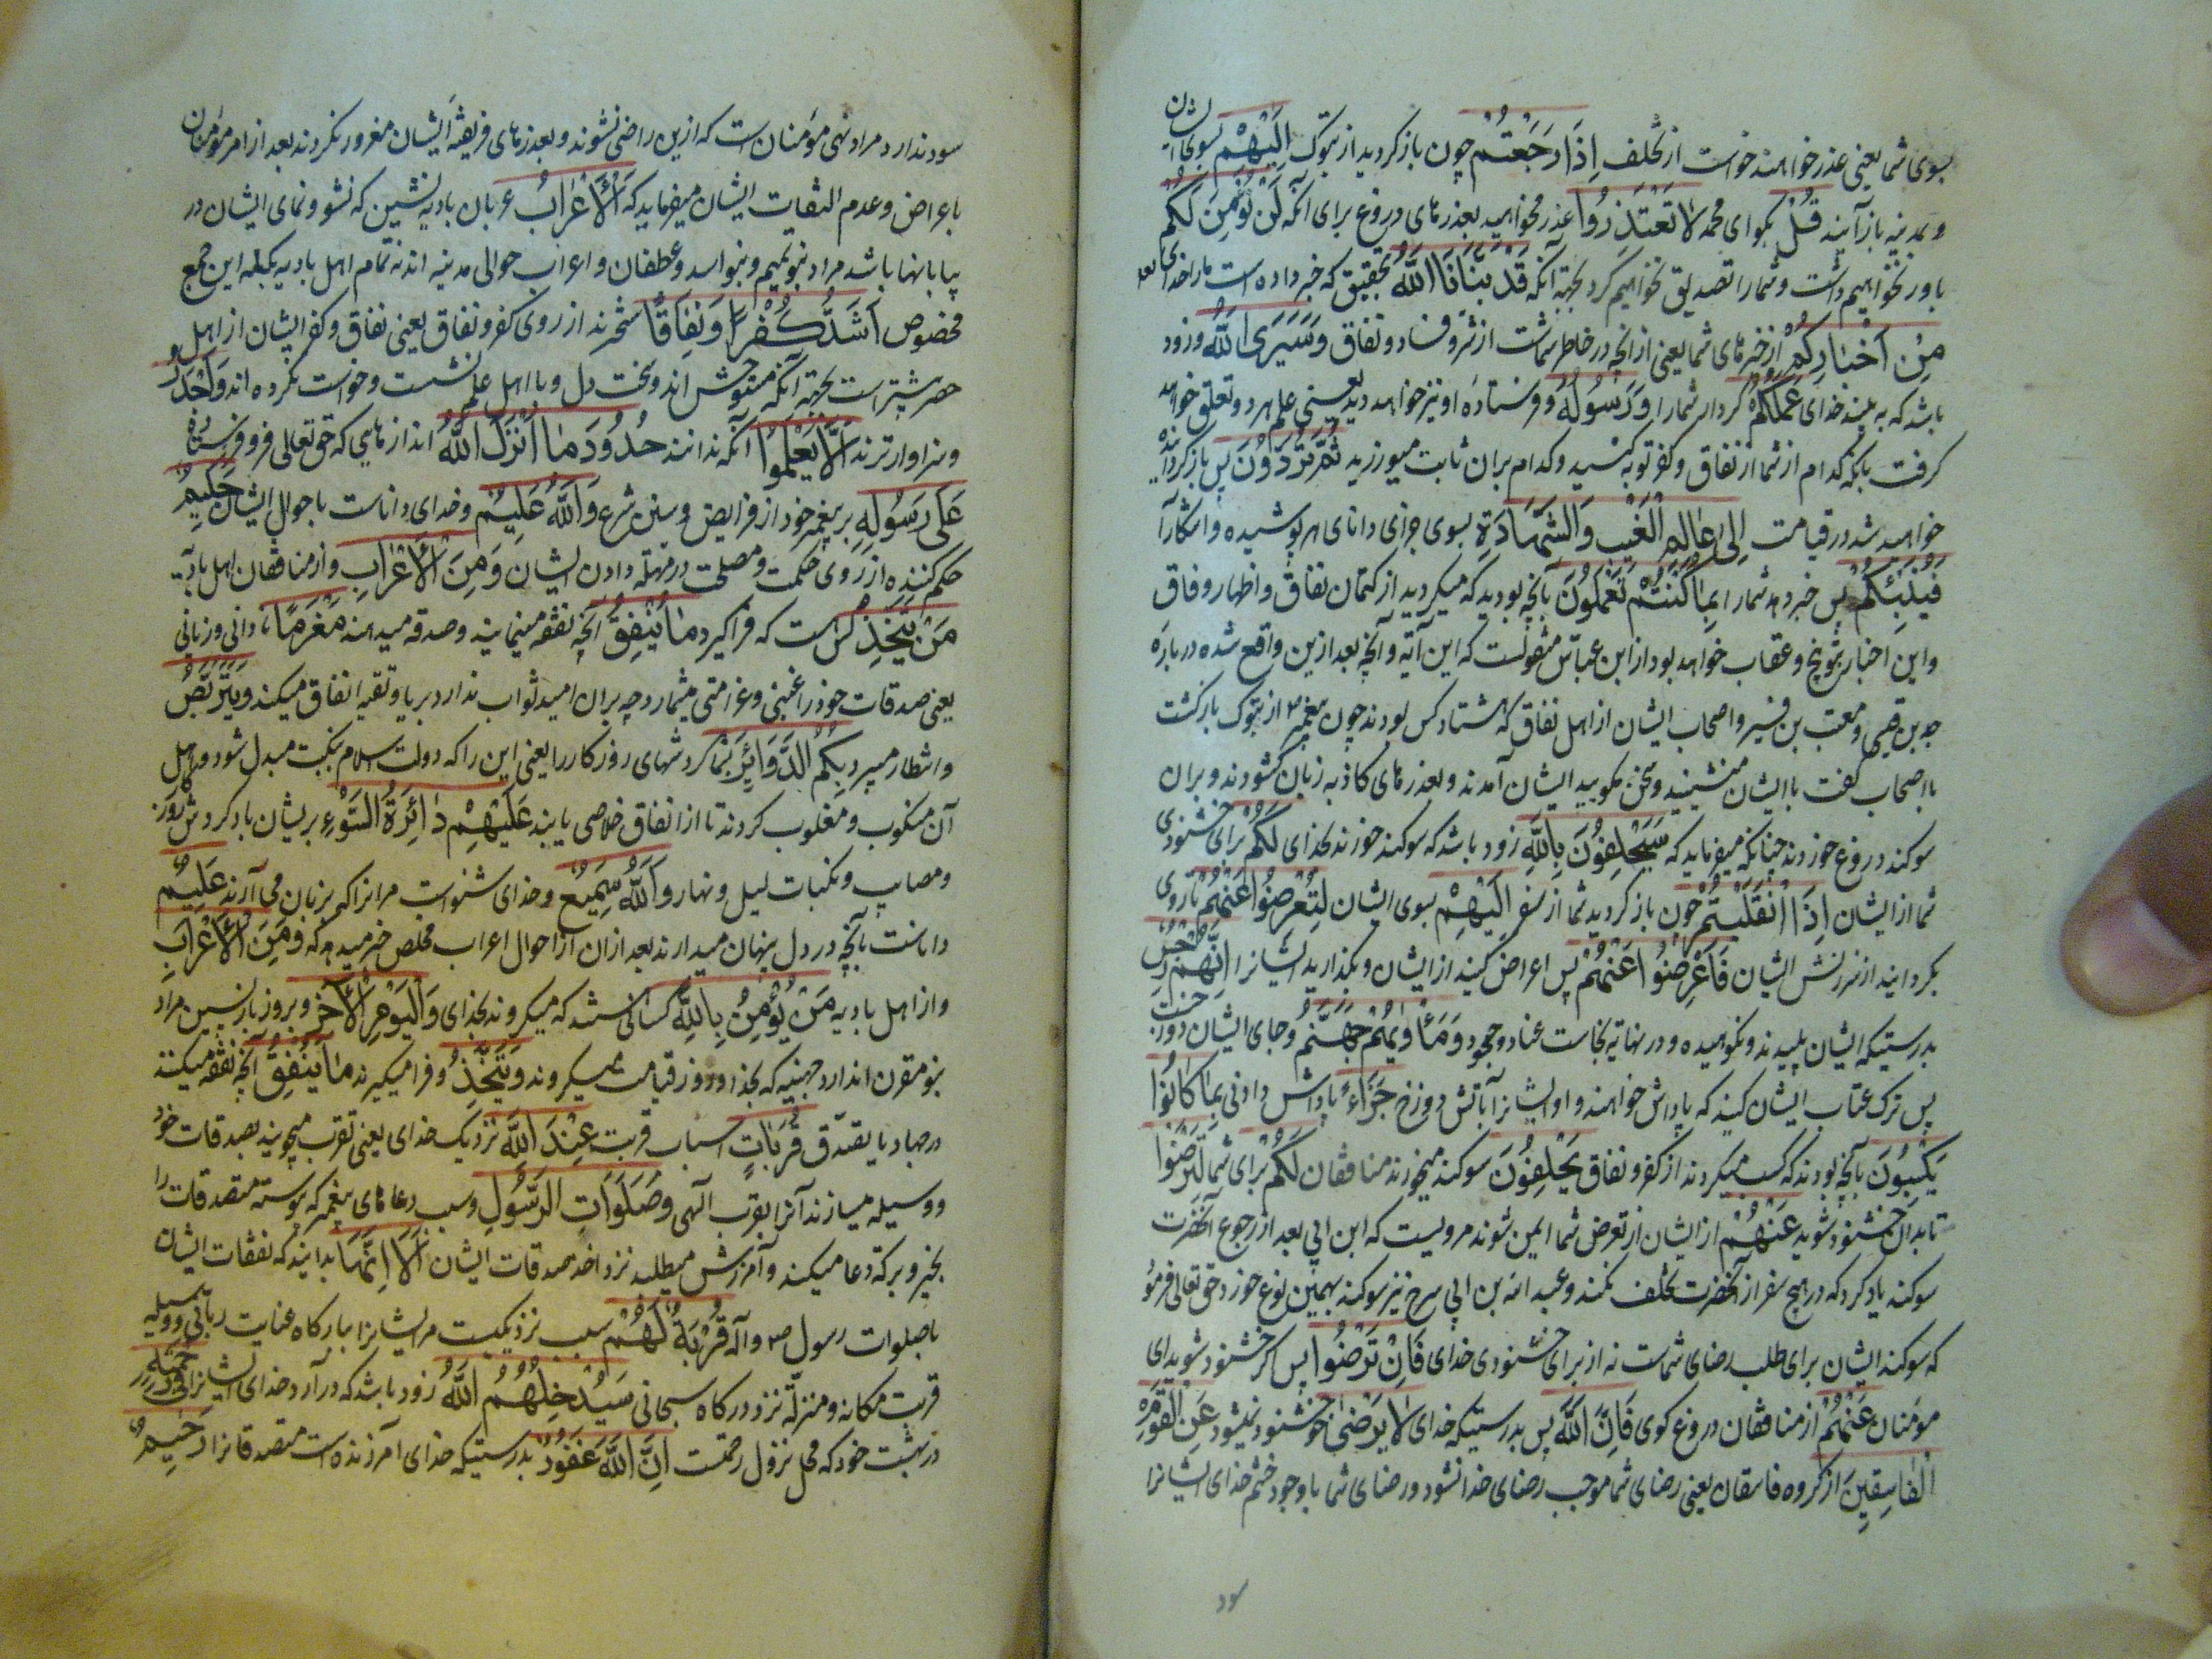 بسوی شما یعنی عذر خواهند خواست از تخلف اِذَا رَجَعْتُمْ چون بازگردید از تبوک اِلَیْهِمْ بسوی ایشان
و بمدینه بازآیید قُلْ بگو ای محمد لَا تَعْتَذِرُوا عذر مخواهید بعذرهای دروغ برای آنکه لَنْ نُؤْمِنَ لَکُمْ
باور نخواهیم داشت و شما را تصدیق نخواهیم کرد بجهة آنکه قَدْ نَبَّأَنَا اللّٰهُ بتحقیق که خبر داده است ما را خدای
مِنْ اَخْبَارِکُمْ از خبرهای شما یعنی از آنچه در خاطر شماست از شر و فساد و نفاق وَسَیَرَی اللّٰهُ و زود
باشد که به بیند خدای عَمَلَکُمْ کردار شما را وَرَسُولُهُ و فرستاده او نیز خواهد دید یعنی علم هر دو تعلق خواهد
گرفت بانکه کدام از شما از نفاق و کفر توبه کنید و کدام بر آن ثابت میورزید ثُمَّ تُرَدُّونَ پس بازگردانیده
خواهید شد در قیامت اِلٰی عَالِمِ الْغَیْبِ وَالشَّهَادَةِ بسوی جزای دانای هر پوشیده و آشکارا
فَیُنَبِّئُکُمْ پس خبر دهد شما را بِمَا کُنْتُمْ تَعْمَلُونَ بانچه بودید که میکردید از کتمان نفاق و اظهار وفاق
و این اخبار بتوبیخ و عقاب خواهد بود از ابن عباس منقولست که این آیه و آنچه بعد ازین واقع شده در باره
جد بن قیس و معتب بن قشیر و اصحاب ایشان از اهل نفاق که هشتاد کس بودند چون پیغمبر از تبوک بازگشت
با اصحاب گفت با ایشان منشینید و سخن مگویید ایشان آمدند و بعذرهای کاذبه زبان گشودند و بر آن
سوکند دروغ خوردند چنانکه میفرماید که سَیَحْلِفُونَ بِاللّٰهِ زود باشد که سوکند خورند بخدای لَکُمْ برای خشنودی
شما از ایشان اِذَا انْقَلَبْتُمْ چون بازگردید شما از سفر اِلَیْهِمْ بسوی ایشان لِتُعْرِضُوا عَنْهُمْ تا روی
بگردانید از سرزنش ایشان فَاَعْرِضُوا عَنْهُمْ پس اعراض کنید از ایشان و بگذارید ایشانرا اِنَّهُمْ رِجْسٌ
بدرستیکه ایشان پلیدند و نکوهیده و در نهایة نجاست عناد و جحود وَمَأْوٰیهُمْ جَهَنَّمُ و جای ایشان دوزخست
پس ترک عتاب ایشان کنید که پاداش خواهند داد ایشانرا بآتش دوزخ جَزَاءً پاداش دادنی بِمَا کَانُوا
یَکْسِبُونَ بانچه بودند که کسب میکردند از کفر و نفاق یَحْلِفُونَ سوکند میخورند منافقان لَکُمْ برای شما لِتَرْضَوْا
تا بدان خشنود شوید عَنْهُمْ از ایشان از تعرض شما ایمن شوند مرویست که ابن ابی بعد از رجوع آنحضرت
سوکند یاد کرد که در هیچ سفر از آنحضرت تخلف نکند و عبد الله بن ابی سرح نیز سوکند بهمین نوع خورد حق تعالی فرمود
که سوکند ایشان برای طلب رضای شماست نه از برای خشنودی خدای فَاِنْ تَرْضَوْا پس اگر خشنود شوید ای
مؤمنان عَنْهُمْ از منافقان دروغ کوی فَاِنَّ اللّٰهَ پس بدرستیکه خدای لَا یَرْضٰی خوشنود نمیشود عَنِ الْقَوْمِ
الْفَاسِقِینَ از گروه فاسقان یعنی رضای شما موجب رضای خدا نشود و رضای شما با وجود خشم خدای ایشانرا
سود
سود ندارد مراد نهی مؤمنان است که ازین راضی نشوند و بعذرهای فریفته ایشان مغرور نگردند بعد از امر مؤمنان
باعراض و عدم التفات ایشان میفرماید که اَلْاَعْرَابُ عربان بادیه نشین که نشو و نمای ایشان در
بیابانها باشد مراد بنو تمیم و بنو اسد و غطفان و اعراب حوالی مدینه اند نه تمام اهل بادیه بلکه این جمع
مخصوص اَشَدُّ کُفْرًا وَنِفَاقًا سخترند از روی کفر و نفاق یعنی نفاق و کفر ایشان از اهل
حضر بیشتر است بجهة آنکه متوحش اند و سخت دل و با اهل علم نشست و خواست نکرده اند وَاَجْدَرُ
و سزاوارترند اَلَّا یَعْلَمُوا آنکه ندانند حُدُودَ مَا اَنْزَلَ اللّٰهُ اندازهایی که حق تعالی فرو فرستاده
عَلٰی رَسُولِهِ بر پیغمبر خود از فرایض و سنن شرع وَاللّٰهُ عَلِیمٌ و خدای داناست باحوال ایشان حَکِیمٌ
حکم کننده از روی حکمت و مصلحت در مهلة دادن ایشان وَمِنَ الْاَعْرَابِ و از منافقان اهل بادیه
مَنْ یَتَّخِذُ کس است که فرا گیرد مَا یُنْفِقُ آنچه نفقه مینماید و صدقه میدهد مَغْرَمًا تاوانی و زیانی
یعنی صدقات خود را غبنی و غرامتی میشمارد چه بر آن امید ثواب ندارد بریا و تقیه انفاق میکند وَیَتَرَبَّصُ
و انتظار میبرد بِکُمُ الدَّوَائِرَ بشما گردشهای روزگار را یعنی این را که دولت اسلام بنکبت مبدل شود و اهل
آن منکوب و مغلوب گردند تا از انفاق خلاصی یابند عَلَیْهِمْ دَائِرَةُ السَّوْءِ بر ایشان باد گردش روزبد
و مصایب و نکبات لیل و نهار وَاللّٰهُ سَمِیعٌ و خدای شنواست مر آنرا که بر زبان می آرند عَلِیمٌ
داناست بانچه در دل پنهان میدارند بعد از آن از احوال اعراب مخلص خبر میدهد که وَمِنَ الْاَعْرَابِ
و از اهل بادیه مَنْ یُؤْمِنُ بِاللّٰهِ کسانی هستند که میگروند بخدای وَالْیَوْمِ الْاٰخِرِ و بروز بازپسین مراد
بنو مقرن اند از جهینه که بخدا و روز قیامت میگروند وَیَتَّخِذُ و فرا میگیرند مَا یُنْفِقُ آنچه نفقه میکنند
در جهاد یا تصدق قُرُبَاتٍ اسباب قربت عِنْدَ اللّٰهِ نزدیک خدای یعنی تقرب میجویند بصدقات خود
و وسیله میسازند آنرا بقرب الهی وَصَلَوَاتِ الرَّسُولِ و سبب دعاهای پیغمبر که پیوسته متصدقات را
بخیر و برکة دعا میکند و آمرزش میطلبد نزد اخذ صدقات ایشان اَلَا اِنَّهَا بدانید که نفقات ایشان
با صلوات رسول ص و آله قُرْبَةٌ لَهُمْ سبب نزدیکیست مر ایشانرا ببارگاه عنایت ربانی و وسیله
قربت مکانه و منزله نزد درگاه سبحانی سَیُدْخِلُهُمُ اللّٰهُ زود باشد که درآرد خدای ایشانرا فِی رَحْمَتِهِ
در بهشت خود که محل نزول رحمتست اِنَّ اللّٰهَ غَفُورٌ بدرستیکه خدای آمرزنده است متصدقانرا رَحِیمٌ